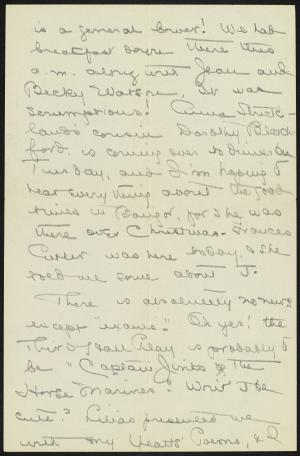 is a general boner! We had
breakfast down there this
a.m. along with Jean and
Becky Watson. It was
scrumptious! Anna Strick-
land's cousin Dorothy Blatch-
ford is coming over to dinner on
Tuesday, and I'm hoping to
hear everything about the good
times in Bangor, for she was
there over Christmas. Frances
was here today, & she
told me some about it.
There is absolutely no news
except "exams." Oh yes! the
Third Hall Play is probably to
be "Captain Jinks of the
Horse Marines". Won't it be
cute? presented me
with my Yeats' Poems, & I